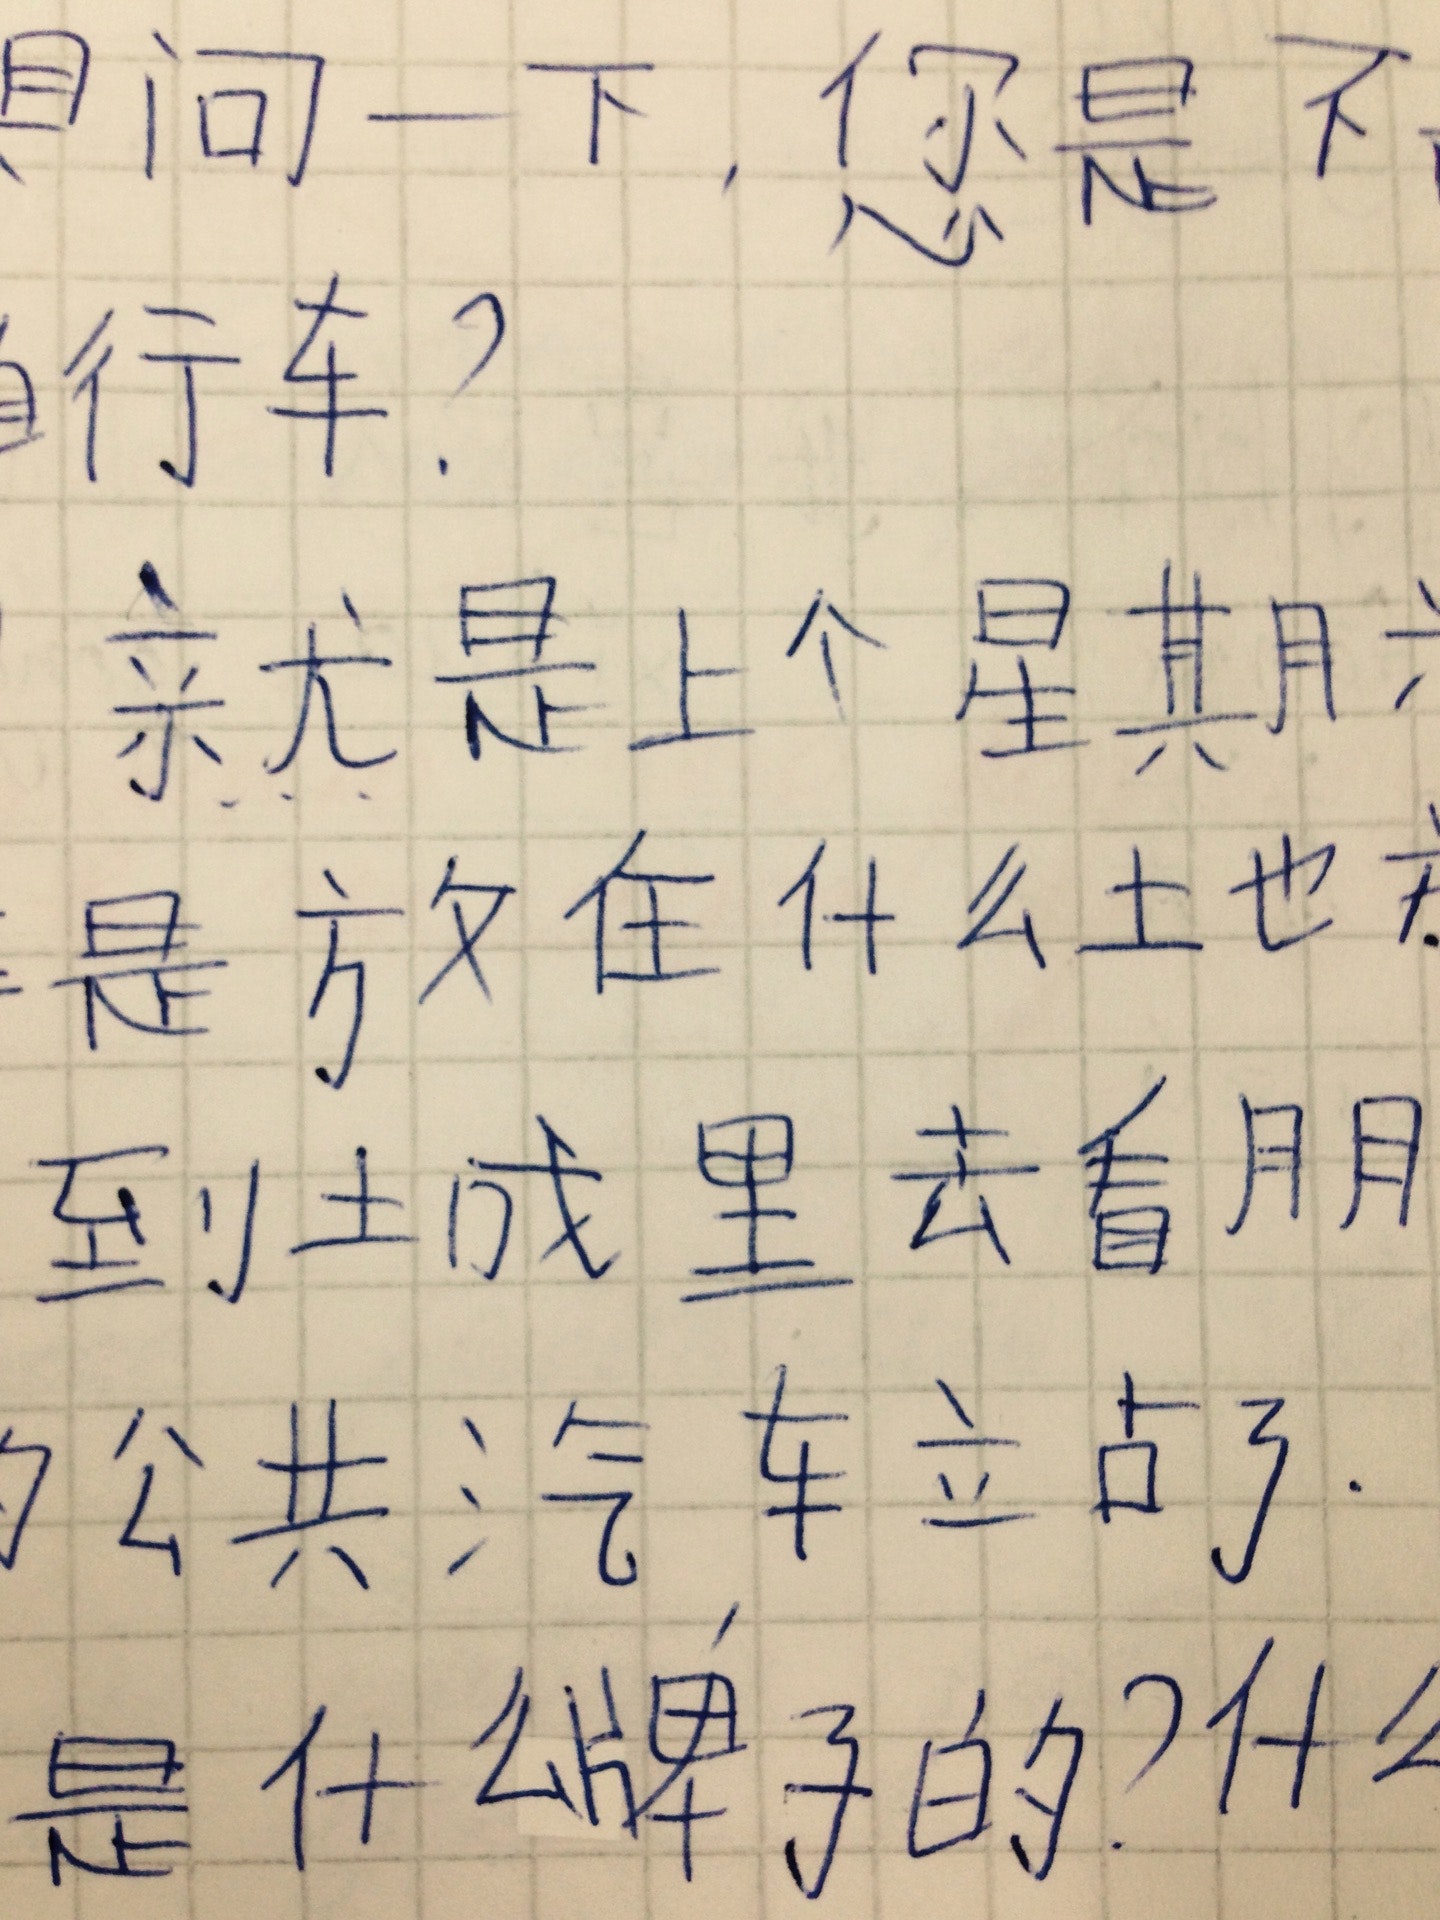 问一下,您是不
自行车?
亲尤是上个星期六
是放在什么地
到城里去看朋
的公共汽车站了.
是什么牌子的?什么